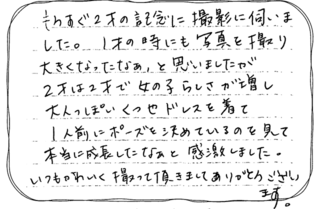 もうすぐ2才の記念に撮影に伺いま
した。1才の時にも写真を撮り
大きくなったなぁ、と思いましたが
2才は2才で女の子らしさが増し
大人っぽいくつやドレスを着て
1人前にポーズを決めているのを見て
本当に成長したなぁと感激しました。
いつもかわいく撮って頂きましてありがとうござい
ます。